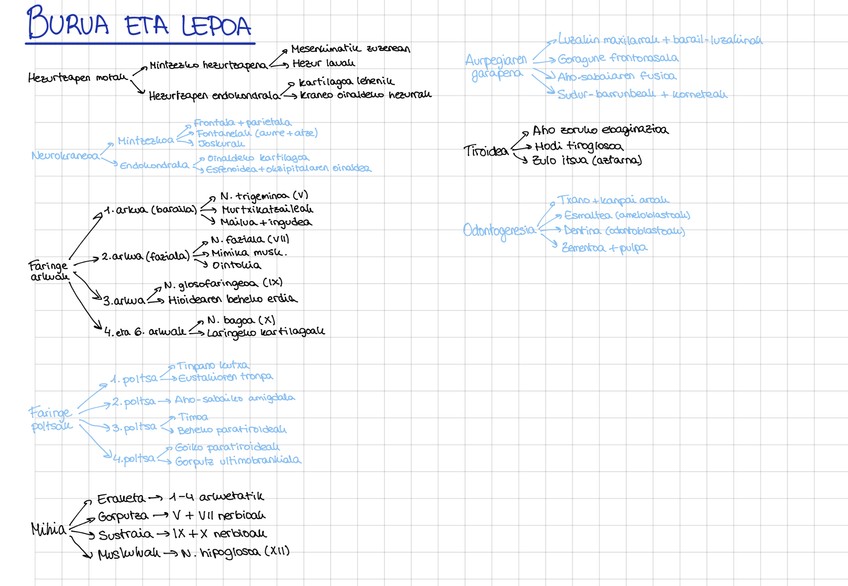 BURUA ETA LEPOA
Hezurtzapen motak
Mintzezko hezurtzapena
Mesenkimatik zuzenean
Hezur lauak
Hezurtzapen endokondrala
Kartilagoa lehenik
Kraneo oinaldeko hezurrak
Neurokraneoa
Mintzezkoa
Frontala + parietala
Fontanelak (aurre + atze)
Joskurak
Endokondrala
Oinaldeko kartilagoa
Esfenoidea + okzipitalaren oinaldea
Faringe
arkuak
1. arkua (baraila)
N. trigeminoa (V)
Murtxikatzaileak
Mailua + ingudea
2. arkua (faziala)
N. faziala (VII)
Mimika musk.
Ointokia
3. arkua
N. glosofaringeoa (IX)
Hioidearen beheko erdia
4. eta 6. arkuak
N. bagoa (X)
Laringeko kartilagoak
Faringe
poltsak
1. poltsa
Tinpano kutxa
Eustakioren tronpa
2. poltsa
Aho-sabaiko amigdala
3. poltsa
Timoa
Beheko paratiroideak
4. poltsa
Goiko paratiroideak
Gorputz ultimobrankiala
Mihia
Eraketa → 1-4 arkuetatik
Gorputza → V + VII nerbioak
Sustraia → IX + X nerbioak
Muskuluak → N. hipoglosoa (XII)
Aurpegiaren
garapena
Luzakin maxilarrak + barail-luzakinak
Goragune frontonasala
Aho-sabaiaren fusioa
Sudur-barrunbeak + korneteak
Tiroidea
Aho zoruko ebaginazioa
Hodi tiroglosoa
Zulo itsua (aztarna)
Odontogenesia
Txano + kanpai aroak
Esmaltea (ameloblastoak)
Dentina (odontoblastoak)
Zementoa + pulpa